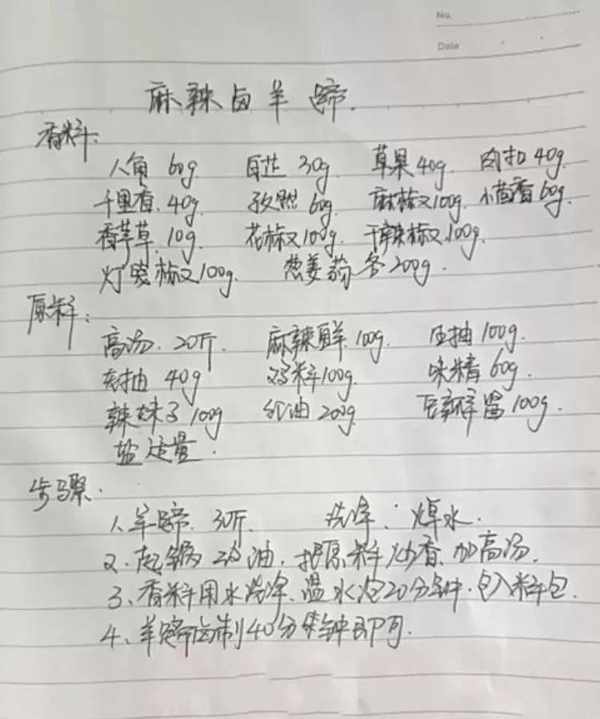 No.
Date
麻辣卤羊蹄.
香料:
八角 60g 白芷 30g 草果 40g 肉扣 40g
千里香. 40g 孜然 60g. 麻椒100g. 小茴香 60g.
香茅草. 10g. 花椒100g. 干辣椒100g.
灯笼椒100g. 葱姜蒜各200g.
原料:
高汤. 20斤. 麻辣鲜 100g. 生抽 100g.
老抽 40g 鸡粉100g. 味精 60g.
辣妹子100g 红油 200g 豆瓣酱100g.
盐适量.
步骤.
1. 羊蹄. 30斤. 洗净. 焯水.
2. 起锅 油, 把原料炒香. 加高汤.
3. 香料用水洗净. 温水泡20分钟. 包入料包.
4. 羊蹄卤制40分钟即可.